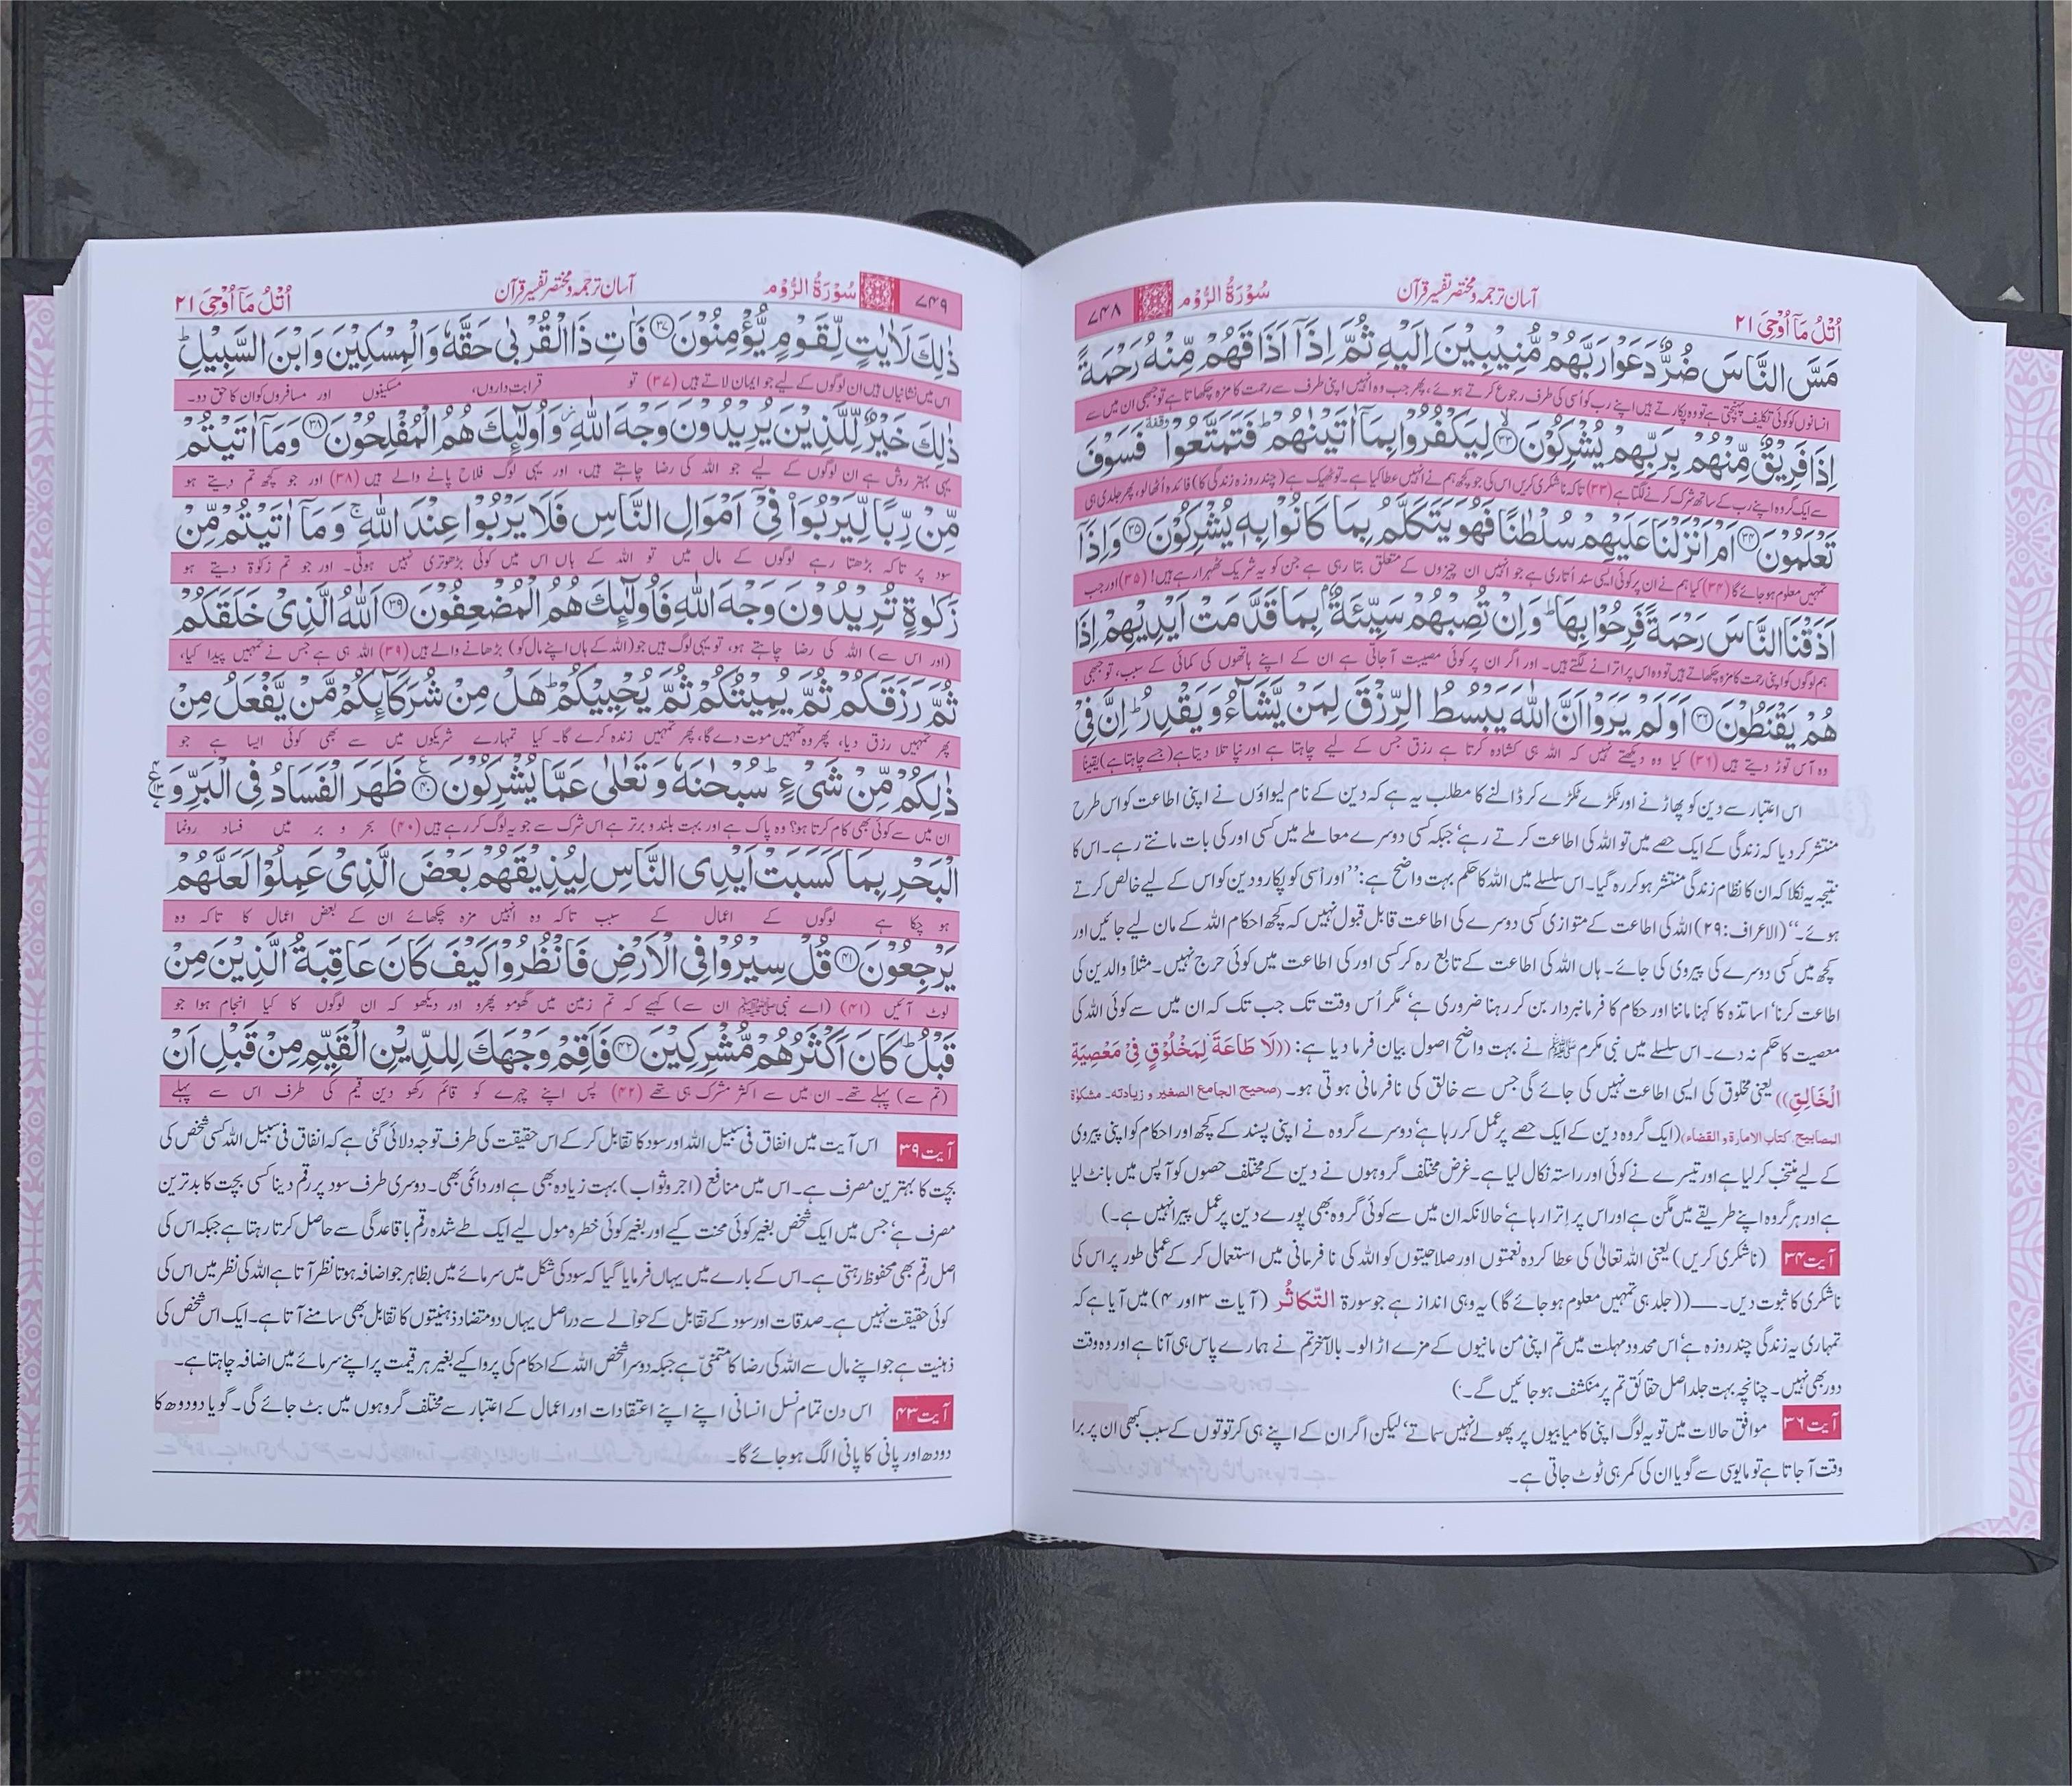 اُتْلُ مَآ اُوْحِیَ ۲۱ آسان ترجمہ و مختصر تفسیر قرآن سُوْرَةُ الرُّوْم ۷۴۸
مَسَّ النَّاسَ ضُرٌّ دَعَوْا رَبَّهُمْ مُّنِيْبِيْنَ اِلَيْهِ ثُمَّ اِذَآ اَذَاقَهُمْ مِّنْهُ رَحْمَةً
انسانوں کو کوئی تکلیف پہنچتی ہے تو وہ پکارتے ہیں اپنے رب کو اُسی کی طرف رجوع کرتے ہوئے، پھر جب وہ انہیں اپنی طرف سے رحمت کا مزہ چکھاتا ہے تو جبھی ان میں سے
اِذَا فَرِيْقٌ مِّنْهُمْ بِرَبِّهِمْ يُشْرِكُوْنَ ۳۳ لِيَكْفُرُوْا بِمَآ اٰتَيْنٰهُمْ ؕ فَتَمَتَّعُوْا وقفة فَسَوْفَ
سے ایک گروہ اپنے رب کے ساتھ شرک کرنے لگتا ہے (۳۳) تاکہ ناشکری کریں اس کی جو کچھ ہم نے انہیں عطا کیا ہے۔ تو ٹھیک ہے (چند روزہ زندگی کا) فائدہ اُٹھا لو، پھر جلدی ہی
تَعْلَمُوْنَ ۳۴ اَمْ اَنْزَلْنَا عَلَيْهِمْ سُلْطٰنًا فَهُوَ يَتَكَلَّمُ بِمَا كَانُوْا بِهٖ يُشْرِكُوْنَ ۳۵ وَاِذَآ
تمہیں معلوم ہو جائے گا (۳۴) کیا ہم نے ان پر کوئی ایسی سند اُتاری ہے جو انہیں ان چیزوں کے متعلق بتا رہی ہے جن کو یہ شریک ٹھہرا رہے ہیں! (۳۵) اور جب
اَذَقْنَا النَّاسَ رَحْمَةً فَرِحُوْا بِهَا ؕ وَاِنْ تُصِبْهُمْ سَيِّئَةٌۢ بِمَا قَدَّمَتْ اَيْدِيْهِمْ اِذَا
ہم لوگوں کو اپنی رحمت کا مزہ چکھاتے ہیں تو وہ اس پر اترانے لگتے ہیں۔ اور اگر ان پر کوئی مصیبت آجاتی ہے ان کے اپنے ہاتھوں کی کمائی کے سبب، تو جبھی
هُمْ يَقْنَطُوْنَ ۳۶ اَوَلَمْ يَرَوْا اَنَّ اللّٰهَ يَبْسُطُ الرِّزْقَ لِمَنْ يَّشَآءُ وَيَقْدِرُ ؕ اِنَّ فِيْ
وہ آس توڑ دیتے ہیں (۳۶) کیا وہ دیکھتے نہیں کہ اللہ ہی کشادہ کرتا ہے رزق جس کے لیے چاہتا ہے اور نپا تلا دیتا ہے (جسے چاہتا ہے) یقیناً
اس اعتبار سے دین کو پھاڑنے اور ٹکڑے ٹکڑے کر ڈالنے کا مطلب یہ ہے کہ دین کے نام لیواؤں نے اپنی اطاعت کو اس طرح
منتشر کر دیا کہ زندگی کے ایک حصے میں تو اللہ کی اطاعت کرتے رہے‘ جبکہ کسی دوسرے معاملے میں کسی اور کی بات مانتے رہے۔ اس کا
نتیجہ یہ نکلا کہ ان کا نظام زندگی منتشر ہو کر رہ گیا۔ اس سلسلے میں اللہ کا حکم بہت واضح ہے: ’’اور اُسی کو پکارو دین کو اس کے لیے خالص کرتے
ہوئے۔‘‘ (الاعراف:۲۹) اللہ کی اطاعت کے متوازی کسی دوسرے کی اطاعت قابل قبول نہیں کہ کچھ احکام اللہ کے مان لیے جائیں اور
کچھ میں کسی دوسرے کی پیروی کی جائے۔ ہاں اللہ کی اطاعت کے تابع رہ کر کسی اور کی اطاعت میں کوئی حرج نہیں۔ مثلاً والدین کی
اطاعت کرنا‘ اساتذہ کا کہنا ماننا اور حکام کا فرمانبردار بن کر رہنا ضروری ہے‘ مگر اُس وقت تک جب تک کہ ان میں سے کوئی اللہ کی
معصیت کا حکم نہ دے۔ اس سلسلے میں نبی مکرم ﷺ نے بہت واضح اصول بیان فرما دیا ہے: ((لَا طَاعَةَ لِمَخْلُوْقٍ فِيْ مَعْصِيَةِ
الْخَالِقِ)) یعنی مخلوق کی ایسی اطاعت نہیں کی جائے گی جس سے خالق کی نافرمانی ہوتی ہو۔ (صحیح الجامع الصغیر و زیادتہ۔ مشکوٰۃ
المصابیح کتاب الامارۃ و القضاء) (ایک گروہ دین کے ایک حصے پر عمل کر رہا ہے‘ دوسرے گروہ نے اپنی پسند کے کچھ اور احکام کو اپنی پیروی
کے لیے منتخب کر لیا ہے اور تیسرے نے کوئی اور راستہ نکال لیا ہے۔ غرض مختلف گروہوں نے دین کے مختلف حصوں کو آپس میں بانٹ لیا
ہے اور ہر گروہ اپنے طریقے میں مگن ہے اور اس پر اِترا رہا ہے‘ حالانکہ ان میں سے کوئی گروہ بھی پورے دین پر عمل پیرا نہیں ہے۔)
آیت ۳۴ (ناشکری کریں) یعنی اللہ تعالیٰ کی عطا کردہ نعمتوں اور صلاحیتوں کو اللہ کی نافرمانی میں استعمال کر کے عملی طور پر اس کی
ناشکری کا ثبوت دیں۔ــــ ((جلد ہی تمہیں معلوم ہو جائے گا) یہ وہی انداز ہے جو سورۃ التّکاثُر (آیات ۳ اور ۴) میں آیا ہے کہ
تمہاری یہ زندگی چند روزہ ہے‘ اس محدود مہلت میں تم اپنی من مانیوں کے مزے اڑا لو۔ بالآخر تم نے ہمارے پاس ہی آنا ہے اور وہ وقت
دور بھی نہیں۔ چنانچہ بہت جلد اصل حقائق تم پر منکشف ہو جائیں گے۔)
آیت ۳۶ موافق حالات میں تو یہ لوگ اپنی کامیابیوں پر پھولے نہیں سماتے‘ لیکن اگر ان کے اپنے ہی کرتوتوں کے سبب کبھی ان پر برا
وقت آ جاتا ہے تو مایوسی سے گویا ان کی کمر ہی ٹوٹ جاتی ہے۔
۷۴۹ سُوْرَةُ الرُّوْم آسان ترجمہ و مختصر تفسیر قرآن اُتْلُ مَآ اُوْحِیَ ۲۱
ذٰلِكَ لَاٰيٰتٍ لِّقَوْمٍ يُّؤْمِنُوْنَ ۳۷ فَاٰتِ ذَا الْقُرْبٰى حَقَّهٗ وَالْمِسْكِيْنَ وَابْنَ السَّبِيْلِ ؕ
اس میں نشانیاں ہیں ان لوگوں کے لیے جو ایمان لاتے ہیں (۳۷) تو قرابت داروں، مسکینوں اور مسافروں کو ان کا حق دو۔
ذٰلِكَ خَيْرٌ لِّلَّذِيْنَ يُرِيْدُوْنَ وَجْهَ اللّٰهِ ز وَاُولٰٓئِكَ هُمُ الْمُفْلِحُوْنَ ۳۸ وَمَآ اٰتَيْتُمْ
یہی بہتر روش ہے ان لوگوں کے لیے جو اللہ کی رضا چاہتے ہیں، اور یہی لوگ فلاح پانے والے ہیں (۳۸) اور جو کچھ تم دیتے ہو
مِّنْ رِّبًا لِّيَرْبُوَا۟ فِيْٓ اَمْوَالِ النَّاسِ فَلَا يَرْبُوْا عِنْدَ اللّٰهِ ۚ وَمَآ اٰتَيْتُمْ مِّنْ
سود پر تاکہ بڑھتا رہے لوگوں کے مال میں تو اللہ کے ہاں اس میں کوئی بڑھوتری نہیں ہوتی۔ اور جو تم زکوٰۃ دیتے ہو
زَكٰوةٍ تُرِيْدُوْنَ وَجْهَ اللّٰهِ فَاُولٰٓئِكَ هُمُ الْمُضْعِفُوْنَ ۳۹ اَللّٰهُ الَّذِيْ خَلَقَكُمْ
(اور اس سے) اللہ کی رضا چاہتے ہو، تو یہی لوگ ہیں جو (اللہ کے ہاں اپنے مال کو) بڑھانے والے ہیں (۳۹) اللہ ہی ہے جس نے تمہیں پیدا کیا،
ثُمَّ رَزَقَكُمْ ثُمَّ يُمِيْتُكُمْ ثُمَّ يُحْيِيْكُمْ ؕ هَلْ مِنْ شُرَكَآئِكُمْ مَّنْ يَّفْعَلُ مِنْ
پھر تمہیں رزق دیا، پھر وہ تمہیں موت دے گا، پھر تمہیں زندہ کرے گا۔ کیا تمہارے شریکوں میں سے بھی کوئی ایسا ہے جو
ذٰلِكُمْ مِّنْ شَيْءٍ ؕ سُبْحٰنَهٗ وَتَعٰلٰى عَمَّا يُشْرِكُوْنَ ۴۰ ظَهَرَ الْفَسَادُ فِي الْبَرِّ وَ
ان میں سے کوئی بھی کام کرتا ہو؟ وہ پاک ہے اور بہت بلند و برتر ہے اس شرک سے جو یہ لوگ کر رہے ہیں (۴۰) بحر و بر میں فساد رونما
الْبَحْرِ بِمَا كَسَبَتْ اَيْدِي النَّاسِ لِيُذِيْقَهُمْ بَعْضَ الَّذِيْ عَمِلُوْا لَعَلَّهُمْ
ہو چکا ہے لوگوں کے اعمال کے سبب تاکہ وہ انہیں مزہ چکھائے ان کے بعض اعمال کا تاکہ وہ
يَرْجِعُوْنَ ۴۱ قُلْ سِيْرُوْا فِي الْاَرْضِ فَانْظُرُوْا كَيْفَ كَانَ عَاقِبَةُ الَّذِيْنَ مِنْ
لوٹ آئیں (۴۱) (اے نبی ﷺ ان سے) کہیے کہ تم زمین میں گھومو پھرو اور دیکھو کہ ان لوگوں کا کیا انجام ہوا جو
قَبْلُ ؕ كَانَ اَكْثَرُهُمْ مُّشْرِكِيْنَ ۴۲ فَاَقِمْ وَجْهَكَ لِلدِّيْنِ الْقَيِّمِ مِنْ قَبْلِ اَنْ
(تم سے) پہلے تھے۔ ان میں سے اکثر مشرک ہی تھے (۴۲) پس اپنے چہرے کو قائم رکھو دین قیم کی طرف اس سے پہلے
آیت ۳۹ اس آیت میں انفاق فی سبیل اللہ اور سود کا تقابل کر کے اس حقیقت کی طرف توجہ دلائی گئی ہے کہ انفاق فی سبیل اللہ کسی شخص کی
بچت کا بہترین مصرف ہے۔ اس میں منافع (اجر و ثواب) بہت زیادہ بھی ہے اور دائمی بھی۔ دوسری طرف سود پر رقم دینا کسی بچت کا بدترین
مصرف ہے‘ جس میں ایک شخص بغیر کوئی محنت کیے اور بغیر کوئی خطرہ مول لیے ایک طے شدہ رقم باقاعدگی سے حاصل کرتا رہتا ہے جبکہ اس کی
اصل رقم بھی محفوظ رہتی ہے۔ اس کے بارے میں یہاں فرمایا گیا کہ سود کی شکل میں سرمائے میں بظاہر جو اضافہ ہوتا نظر آتا ہے اللہ کی نظر میں اس کی
کوئی حقیقت نہیں ہے۔ صدقات اور سود کے تقابل کے حوالے سے دراصل یہاں دو متضاد ذہنیتوں کا تقابل بھی سامنے آتا ہے۔ ایک اس شخص کی
ذہنیت ہے جو اپنے مال سے اللہ کی رضا کا متمنی ہے جبکہ دوسرا شخص اللہ کے احکام کی پروا کیے بغیر ہر قیمت پر اپنے سرمائے میں اضافہ چاہتا ہے۔
آیت ۴۳ اس دن تمام نسل انسانی اپنے اپنے اعتقادات اور اعمال کے اعتبار سے مختلف گروہوں میں بٹ جائے گی۔ گویا دودھ کا
دودھ اور پانی کا پانی الگ ہو جائے گا۔